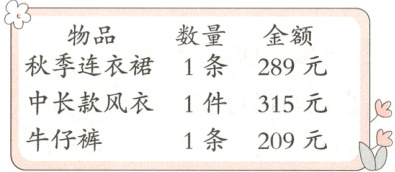 物品 数量 金额
秋季连衣裙 1条 289元
中长款风衣 1件 315元
牛仔裤 1条 209元